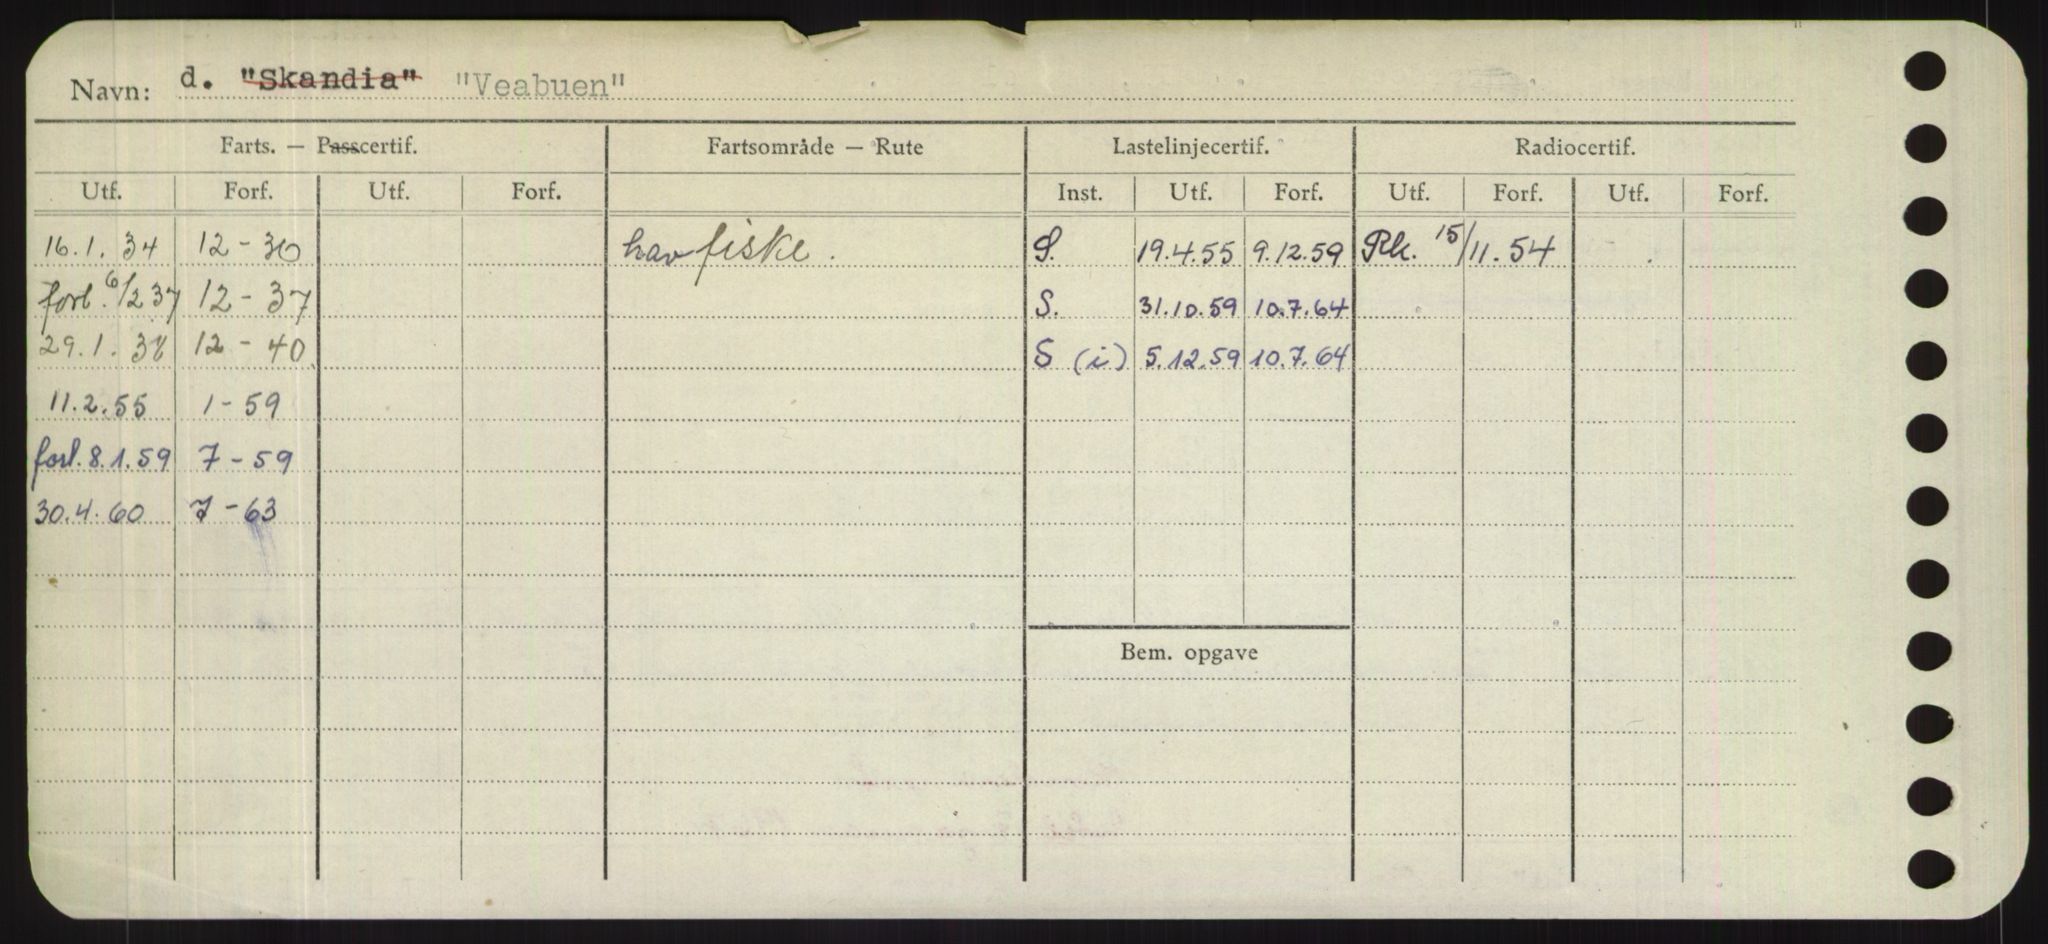 Navn: d. "Skandia" "Veabuen"
Farts. — Passcertif. Fartsområde — Rute Lastelinjecertif. Radiocertif.
Utf. Forf. Utf. Forf. Inst. Utf. Forf. Utf. Forf. Utf. Forf.
16.1.34 12-30 havfiske. S. 19.4.55 9.12.59 Rk. 15/11.54
forl. 6/2 37 12-37 S. 31.10.59 10.7.64
29.1.38 12-40 S (i) 5.12.59 10.7.64
11.2.55 1-59
forl. 8.1.59 7-59
30.4.60 7-63
Bem. opgave